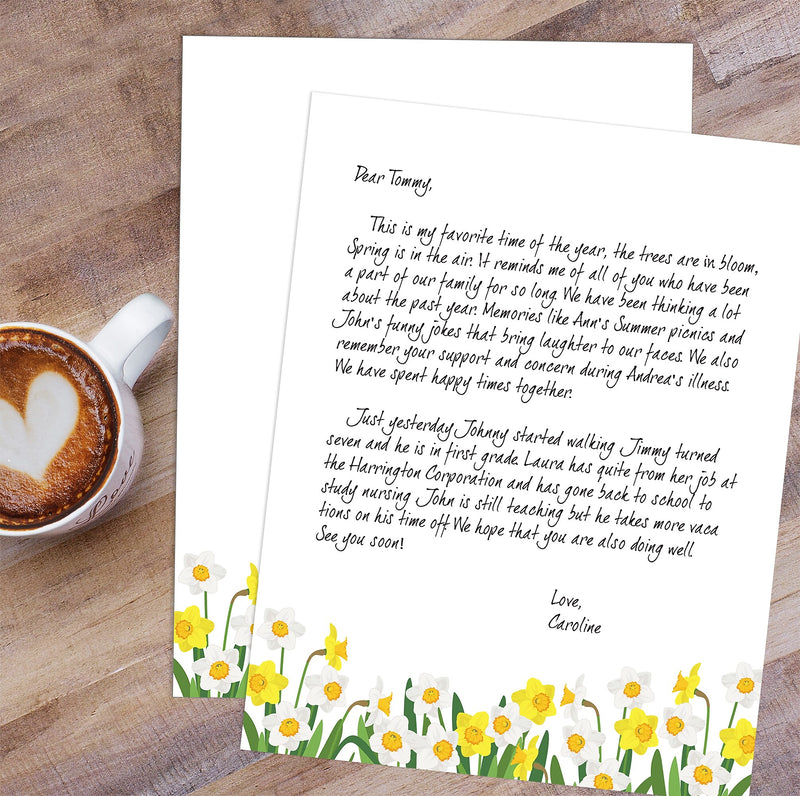 Dear Tommy,
This is my favorite time of the year, the trees are in bloom,
Spring is in the air. It reminds me of all of you who have been
a part of our family for so long. We have been thinking a lot
about the past year. Memories like Ann's Summer picnics and
John's funny jokes that bring laughter to our faces. We also
remember your support and concern during Andrea's illness.
We have spent happy times together.
Just yesterday Johnny started walking. Jimmy turned
seven and he is in first grade. Laura has quite from her job at
the Harrington Corporation and has gone back to school to
study nursing. John is still teaching but he takes more vaca
tions on his time off. We hope that you are also doing well.
See you soon!
Love,
Caroline
Love